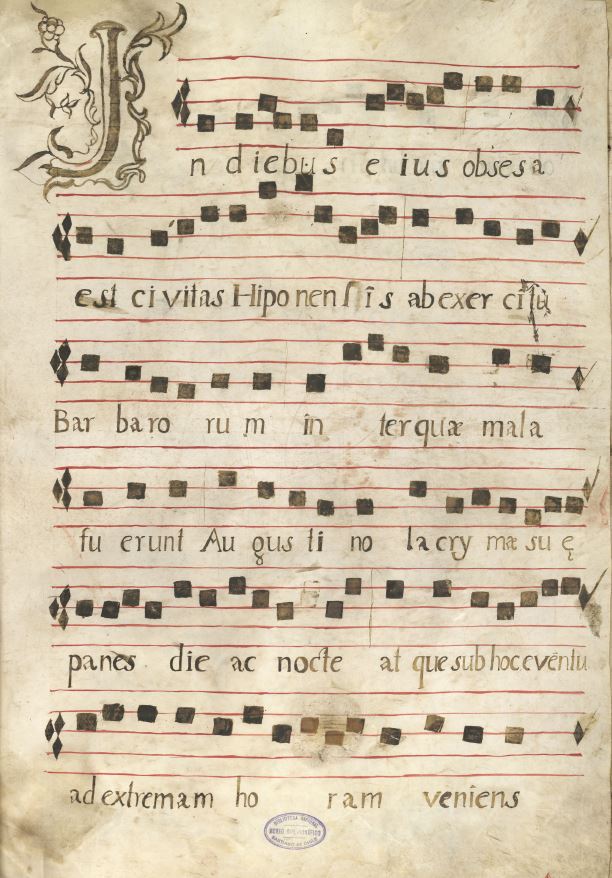 In diebus eius obsesa
est civitas Hiponensîs ab exercitû
Barbarorum în terquæ mala
fuerunt Augustino lacrymæ suę
panès die ac nocte atque sub hoc evêntu
ad extremam horam venîens
BIBLIOTECA NACIONAL
SANTIAGO DE CHILE